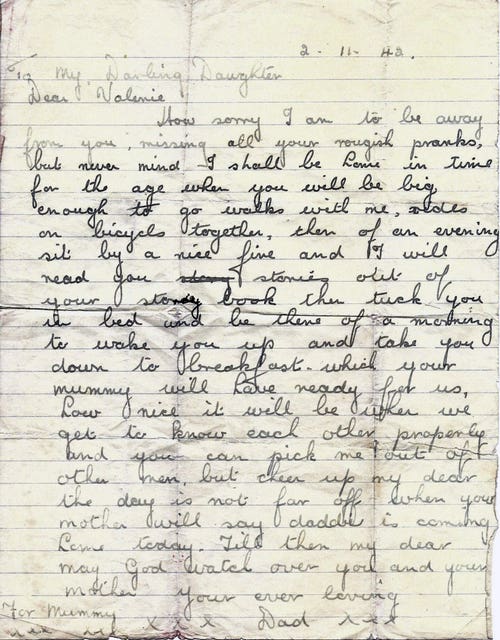 2 - 11 - 42.
To My Darling Daughter
Dear Valerie
How sorry I am to be away
from you, missing all your rougish pranks,
but never mind I shall be home in time
for the age when you will be big
enough to go walks with me, rides
on bicycls together, then of an evening
sit by a nice fire and I will
read you story stories out of
your storey book then tuck you
in bed and be there of a morning
to wake you up and take you
down to breakfast. which your
mummy will have ready for us,
how nice it will be when we
get to know each other properly
and you can pick me out of
other men, but cheer up my dear
the day is not far off when your
mother will say daddie is coming
home today. Till then my dear
may God watch over you and your
mother your ever loving
For Mummy
xxx xxx xxx Dad xxx